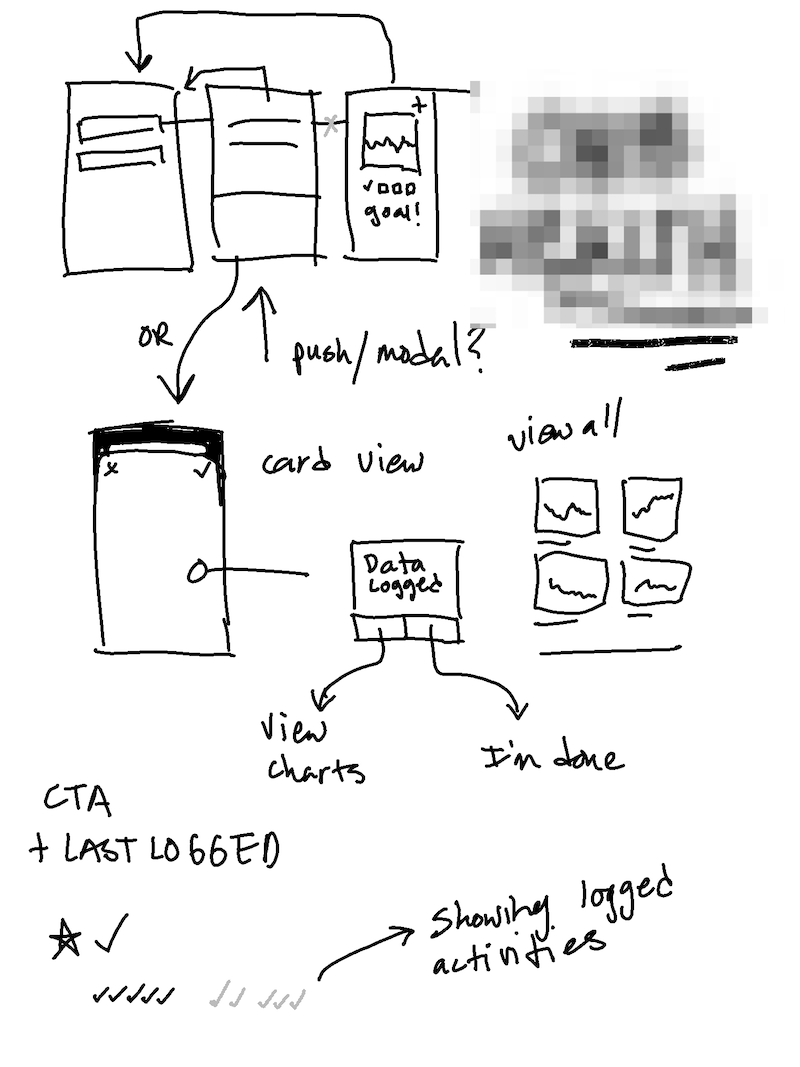 +
goal!
OR
push/modal?
x ✓
card view
view all
Data
Logged
View
charts
I'm done
CTA
+ LAST LOGGED
Showing logged
activities